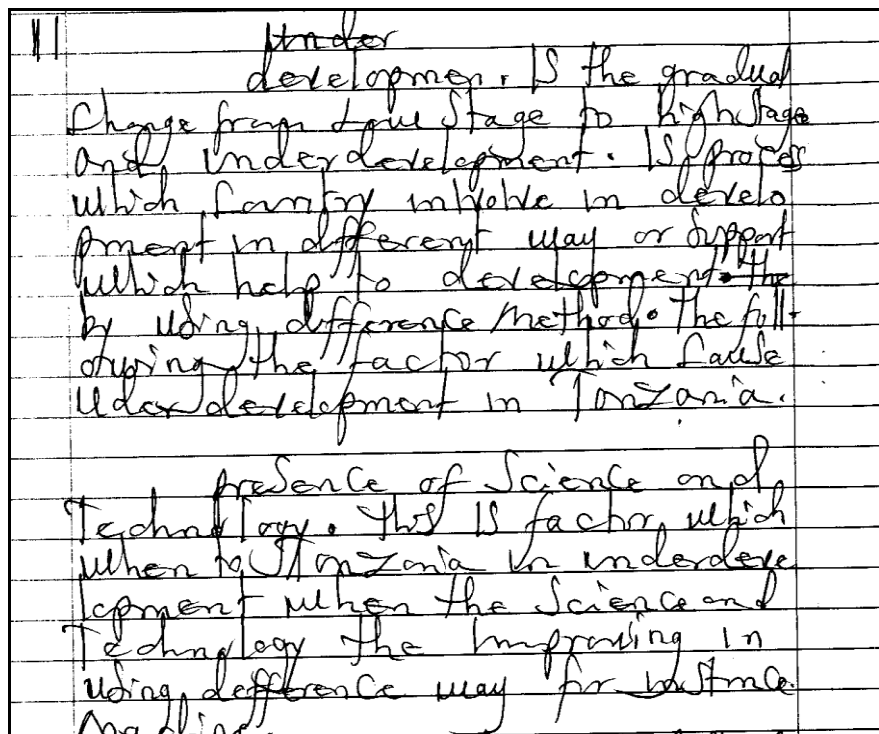 11 Under
developmen. Is the gradual
change from Low Stage to high Stage
and underdevelopment. Is proces
which Country invlolve in develo
pment in different way or Support
which help to development. the
by using difference Method. The foll-
owing the factor which Cause
Uderdevelopment in Tanzania.
presence of Science and
Technology. This is factor which
when to Tanzania in underdeve
lopment when the Science and
Technology the Improving in
using defference way for instance